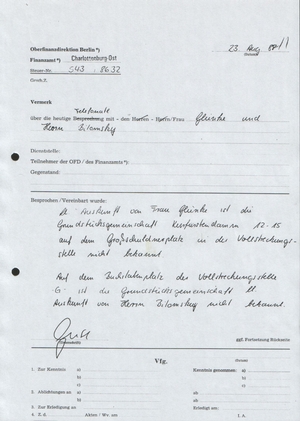 Oberfinanzdirektion Berlin*)
Finanzamt*) Charlottenburg-Ost
Steuer-Nr. 543 8632
Gesch.Z.
23. Aug.
(Datum)
Vermerk
Telefonat
über die heutige Besprechung mit – den Herren – Herrn/Frau Glinke und
Herrn Bilomsky
Dienststelle:
Teilnehmer der OFD / des Finanzamts*):
Gegenstand:
Besprochen / Vereinbart wurde:
Lt. Auskunft von Frau Glinke ist die
Grundstücksgemeinschaft Kurfürstendamm 12-15
auf dem Großschuldnerplatz in der Vollstreckungs-
stelle nicht bekannt.
Auf dem Buchhalterplatz der Vollstreckungsstelle
G. ist die Grundstücksgemeinschaft lt.
Auskunft von Herrn Bilomsky nicht bekannt.
ggf. Fortsetzung Rückseite
Vfg.
1. Zur Kenntnis a)
b)
Kenntnis genommen: a)
b)
3. Ablichtungen an a)
b)
ab
ab
3. Zur Erledigung an
Erledigt am:
4. Z. d. Akten / Wv. am
I. A.